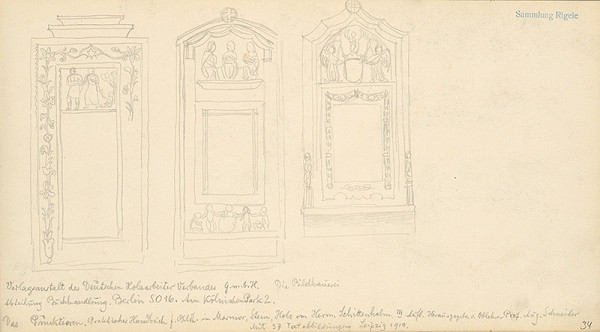 Sammlung Rigele
Verlagsanstalt des Deutschen Holzarbeiter Verbandes G.m.b.H. Die Bildhauerei
Abteilung Buchhandlung, Berlin SO 16. Am Köllnischen Park 2.
Das Punktieren, Praktisches Handbuch f. in Marmor, Stein, Holz von Herm. Schittenhelm. III Aufl. Herausgegeb. v. Prof. Aug. Schneider
mit 57 Textabbildungen Leipzig 1910.
34